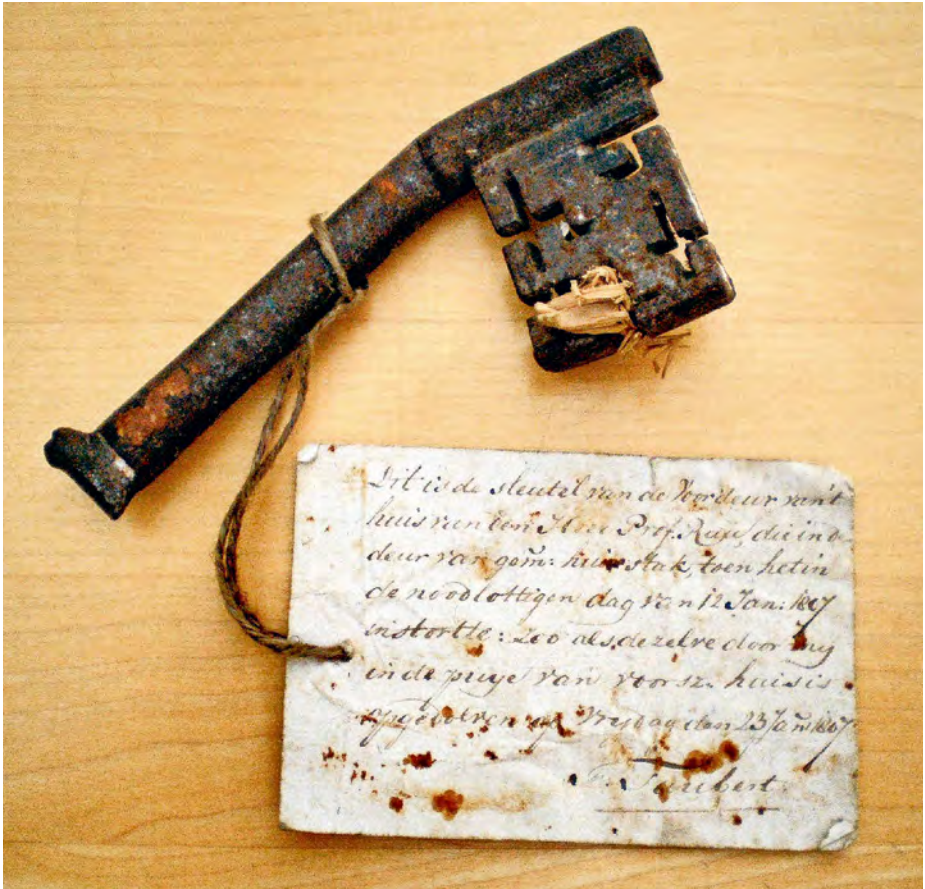 Dit is de sleutel van de Voordeur van 't
huis van den Heer Prof. Rau, die in de
deur van gem: huis stak, toen het in
de noodlottigen dag van 12 Jan: 1807
instortte: zoo als dezelve door my
in de puye van voorsz. huis is
opgedolven op Vrydag den 23 Jan: 1807
Taubert.